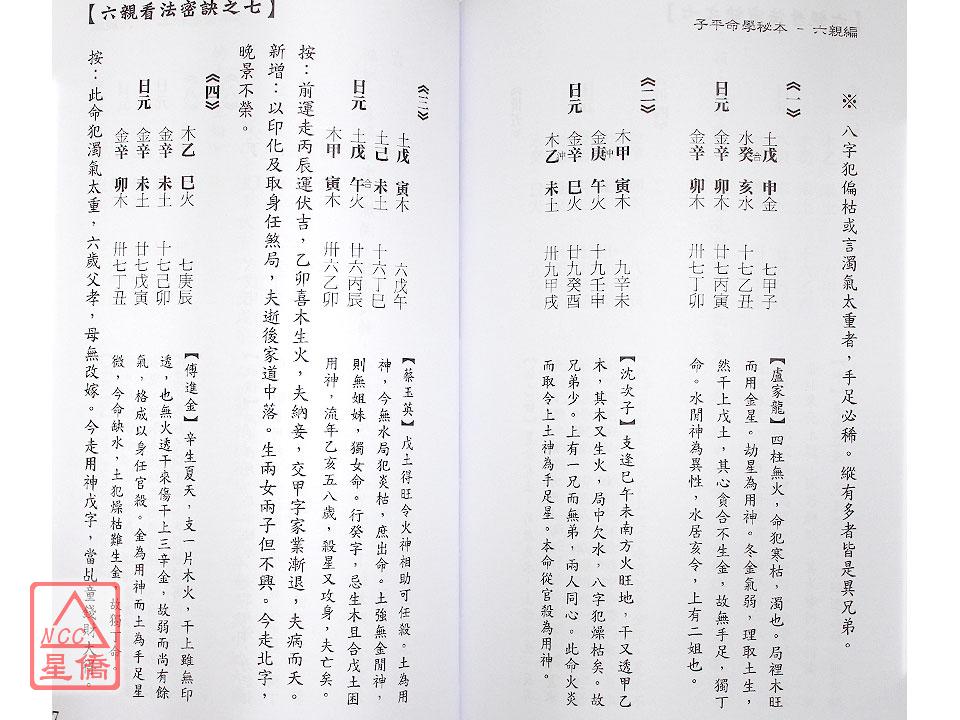 子平命學秘本－六親編
※ 八字犯偏枯或言濁氣太重者，手足必稀。縱有多者皆是異兄弟。
《一》
土戊 申金 七甲子
水癸合 亥水 十七乙丑
日元 金辛 卯木 廿七丙寅
金辛 卯木 卅七丁卯
【盧家龍】四柱無火，命犯寒枯，濁也。局裡木旺
而用金星。劫星為用神。冬金氣弱，理取土生，
然干上戊土，其心貪合不生金，故無手足，獨丁
命。水閒神為異性，水居亥令，上有二姐也。
《二》
木甲 寅木 九辛未
金庚沖 午火 十九壬申
日元 金辛 巳火 廿九癸酉
木乙沖 未土 卅九甲戌
【沈次子】支逢巳午未南方火旺地，干又透甲乙
木，其木又生火，局中欠水，八字犯燥枯矣。故
兄弟少。上有一兄而無弟，兩人同心。此命火炎
而取令上土神為手足星。本命從官殺為用神。
【六親看法密訣之七】
《三》
土戊 寅木 六戊午
土己 未土 十六丁巳
日元 土戊 午火合 廿六丙辰
木甲 寅木 卅六乙卯
【蔡玉英】戊土得旺令火神相助可任殺。土為用
神，今無水局犯炎枯，庶出命。土強無金閒神，
則無姐妹，獨女命。行癸字，忌生木且合戊土困
用神，流年乙亥五八歲，殺星又攻身，夫亡矣。
按：前運走丙辰運伏吉，乙卯喜木生火，夫納妾，交甲字家業漸退，夫病而夭。
新增：以印化及取身任煞局，夫逝後家道中落。生兩女兩子但不興。今走北字，
晚景不榮。
《四》
木乙 巳火 七庚辰
金辛 未土 十七己卯
日元 金辛 未土 廿七戊寅
金辛 卯木 卅七丁丑
【傅進金】辛生夏天，支一片木火，干上雖無印
透，也無火透干來傷干上三辛金，故弱而尚有餘
氣，格成以身任官殺。金為用神而土為手足星
微，今命缺水，土犯燥枯難生金，故獨丁命。
按：此命犯濁氣太重，六歲父孝，母無改嫁。今走用神戊字，當乩童錢財大
NCC
星僑
7